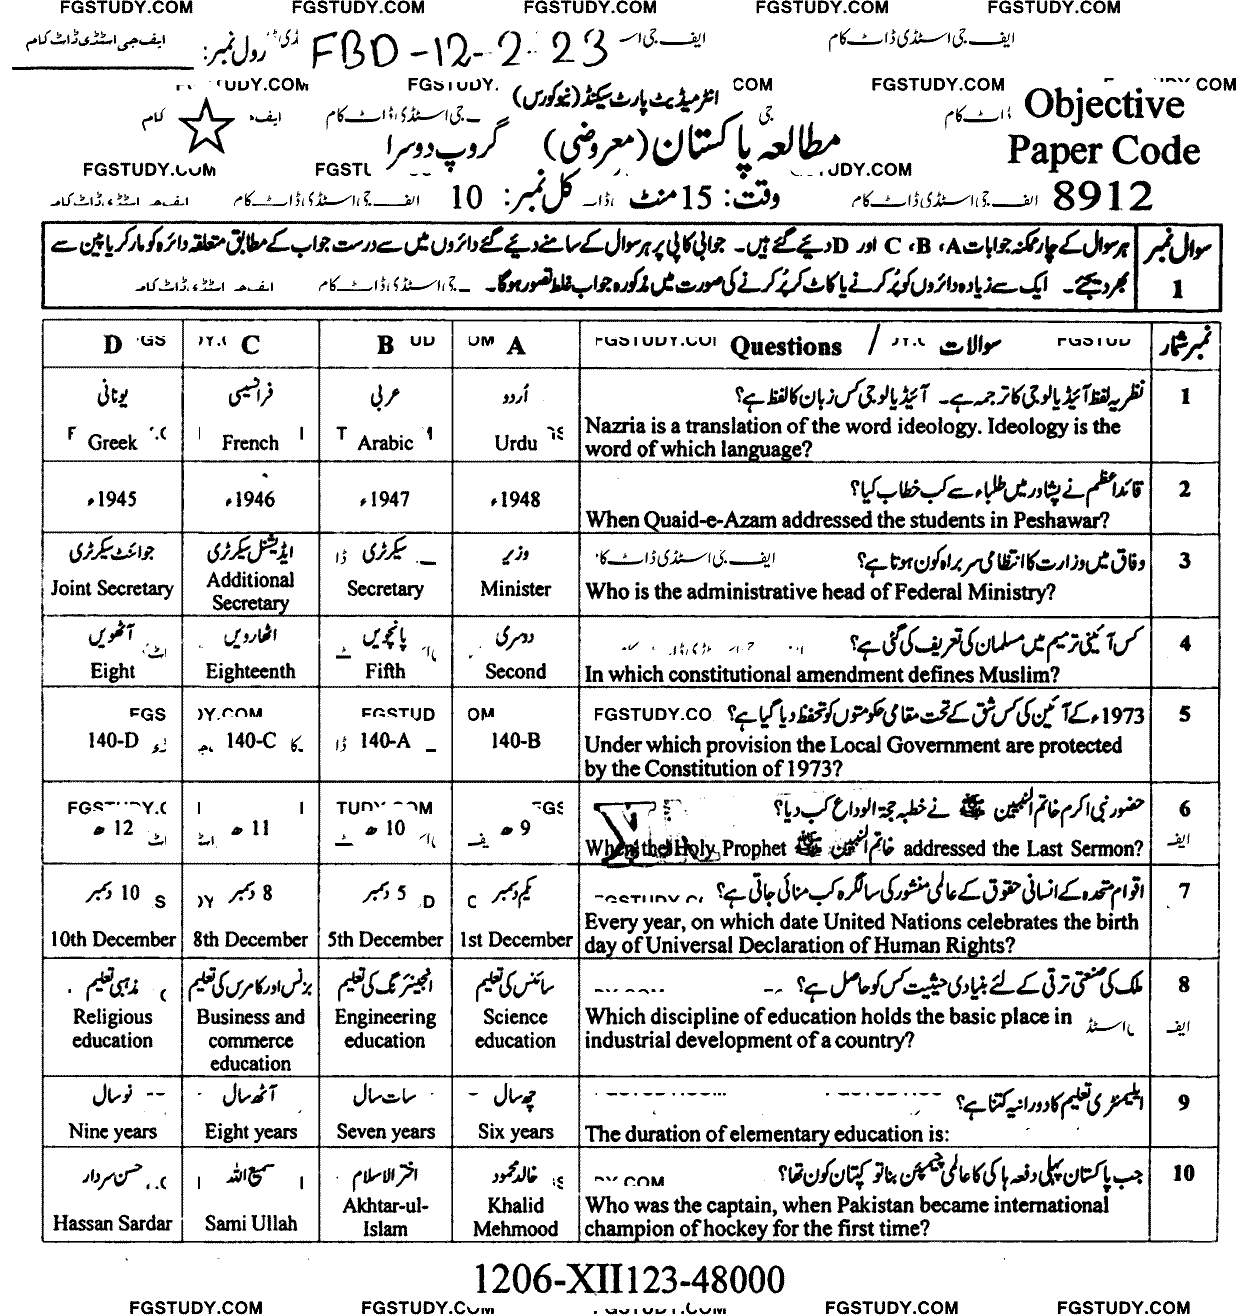 FGSTUDY.COM FGSTUDY.COM FGSTUDY.COM FGSTUDY.COM FGSTUDY.COM
ایف جی اسٹڈی ڈاٹ کام رول نمبر: FBD-12-2-23 ایف جی اس ایف جی اسٹڈی ڈاٹ کام
انٹرمیڈیٹ پارٹ سیکنڈ (نیو کورس) FGSTUDY.COM
Objective
مطالعہ پاکستان (معروضی) گروپ دوسرا
Paper Code
FGSTUDY.COM
وقت: 15 منٹ کل نمبر: 10
8912
سوال نمبر 1
ہر سوال کے چار ممکنہ جوابات A، B، C اور D دیئے گئے ہیں۔ جوابی کاپی پر ہر سوال کے سامنے دیئے گئے دائروں میں سے درست جواب کے مطابق متعلقہ دائرہ کو مارکر یا پین سے
بھر دیجئے۔ ایک سے زیادہ دائروں کو پُر کرنے یا کاٹ کر پُر کرنے کی صورت میں مذکورہ جواب غلط تصور ہوگا۔
D C B A Questions / سوالات نمبر شمار
یونانی فرانسیسی عربی اُردو نظریہ لفظ آئیڈیالوجی کا ترجمہ ہے۔ آئیڈیالوجی کس زبان کا لفظ ہے؟ 1
Greek French Arabic Urdu Nazria is a translation of the word ideology. Ideology is the
word of which language?
قائداعظم نے پشاور میں طلباء سے کب خطاب کیا؟ 2
1945ء 1946ء 1947ء 1948ء
When Quaid-e-Azam addressed the students in Peshawar?
جوائنٹ سیکرٹری ایڈیشنل سیکرٹری سیکرٹری وزیر وفاق میں وزارت کا انتظامی سربراہ کون ہوتا ہے؟ 3
Joint Secretary Additional Secretary Secretary Minister Who is the administrative head of Federal Ministry?
آٹھویں اٹھارویں پانچویں دوسری کس آئینی ترمیم میں مسلمان کی تعریف کی گئی ہے؟ 4
Eight Eighteenth Fifth Second In which constitutional amendment defines Muslim?
1973ء کے آئین کی کس شق کے تحت مقامی حکومتوں کو تحفظ دیا گیا ہے؟ 5
140-D 140-C 140-A 140-B Under which provision the Local Government are protected
by the Constitution of 1973?
حضور نبی اکرم خاتم النبیین ﷺ نے خطبہ حجۃ الوداع کب دیا؟ 6
12ھ 11ھ 10ھ 9ھ
When the Holy Prophet خاتم النبیین ﷺ addressed the Last Sermon?
10 دسمبر 8 دسمبر 5 دسمبر یکم دسمبر اقوام متحدہ کے انسانی حقوق کے عالمی منشور کی سالگرہ کب منائی جاتی ہے؟ 7
10th December 8th December 5th December 1st December Every year, on which date United Nations celebrates the birth
day of Universal Declaration of Human Rights?
مذہبی تعلیم بزنس اور کامرس کی تعلیم انجینئرنگ کی تعلیم سائنس کی تعلیم ملک کی صنعتی ترقی کے لئے بنیادی حیثیت کس کو حاصل ہے؟ 8
Religious education Business and commerce education Engineering education Science education Which discipline of education holds the basic place in
industrial development of a country?
نو سال آٹھ سال سات سال چھ سال ایلیمنٹری تعلیم کا دورانیہ کتنا ہے؟ 9
Nine years Eight years Seven years Six years The duration of elementary education is:
حسن سردار سمیع اللہ اختر الاسلام خالد محمود جب پاکستان پہلی دفعہ ہاکی کا عالمی چیمپئن بنا تو کپتان کون تھا؟ 10
Hassan Sardar Sami Ullah Akhtar-ul-Islam Khalid Mehmood Who was the captain, when Pakistan became international
champion of hockey for the first time?
1206-XII123-48000
FGSTUDY.COM FGSTUDY.COM FGSTUDY.COM FGSTUDY.COM